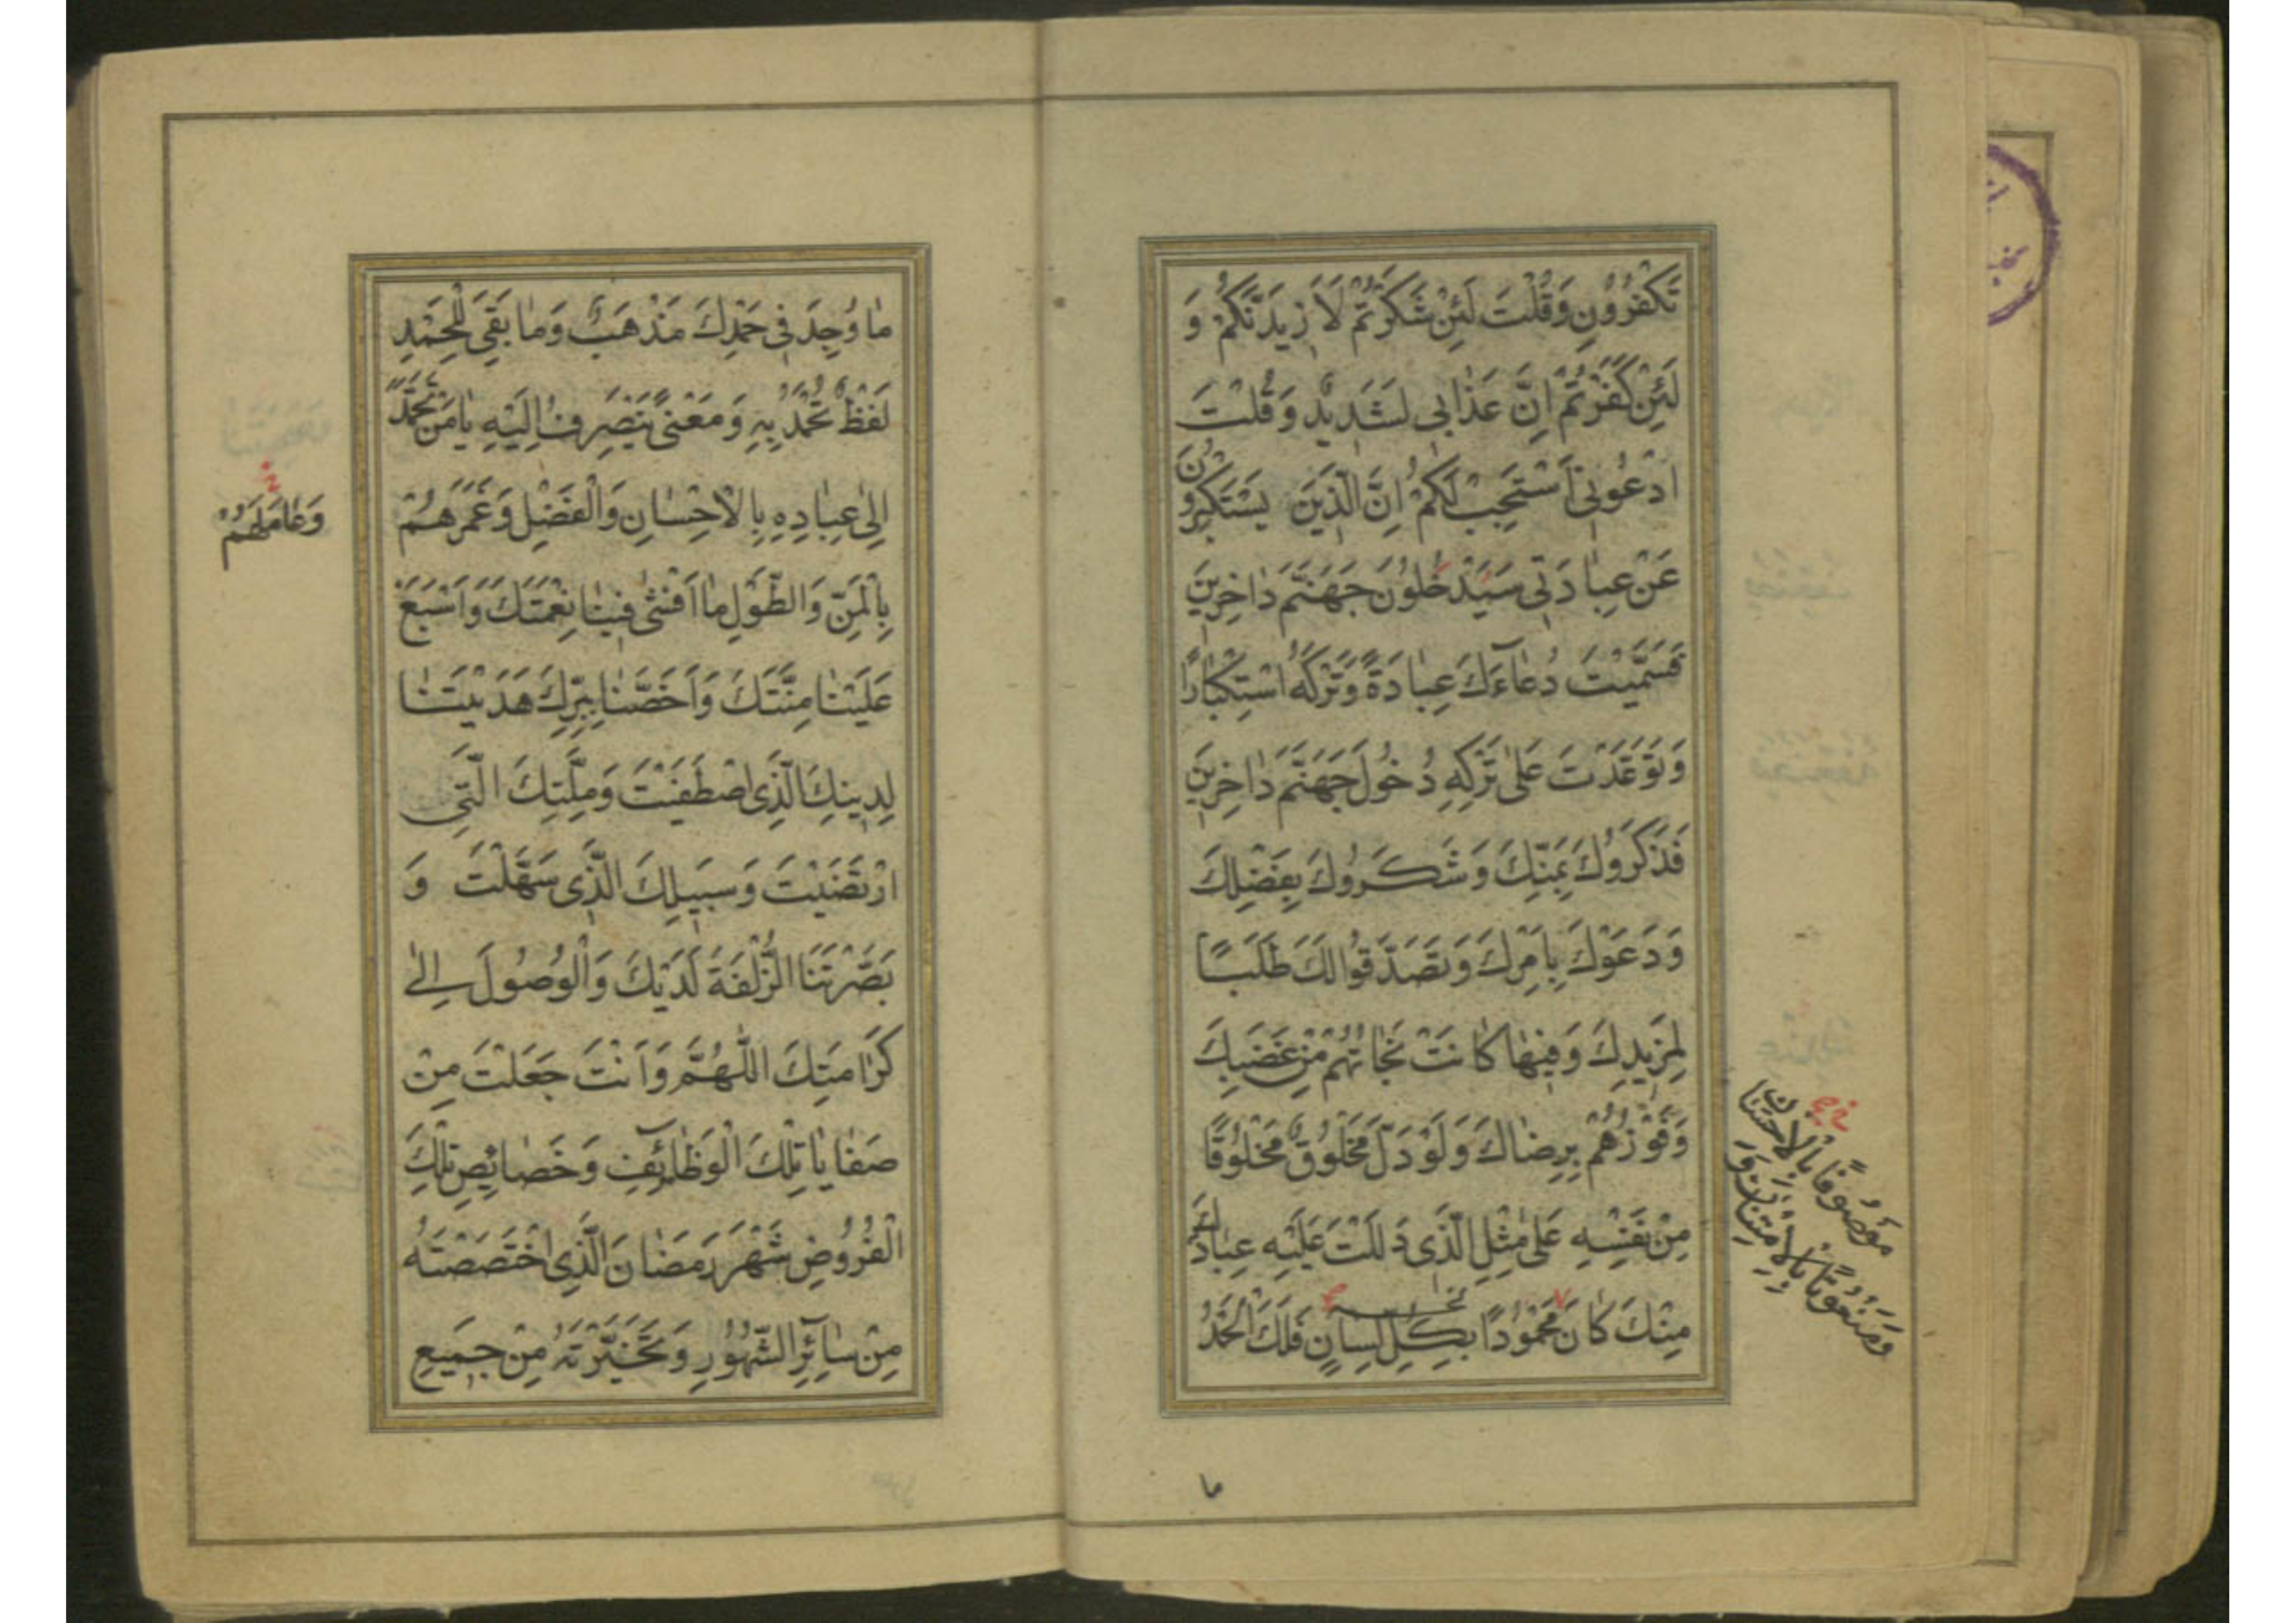 تَكْفُرُوْنِ وَقُلْتَ لَئِنْ شَكَرْتُمْ لَاَزِيدَنَّكُمْ وَ
لَئِنْ كَفَرْتُمْ اِنَّ عَذٰابِي لَشَدِيدٌ وَقُلْتَ
ادْعُونِي اَسْتَجِبْ لَكُمْ اِنَّ الَّذِينَ يَسْتَكْبِرُونَ
عَنْ عِبٰادَتِي سَيَدْخُلوُنَ جَهَنَّمَ دٰاخِرِينَ
فَسَمَّيْتَ دُعٰآءَكَ عِبٰادَةً وَتَرْكَهُ اسْتِكْبٰارًا
وَتَوَعَّدْتَ عَلىٰ تَرْكِهِ دُخُولَ جَهَنَّمَ دٰاخِرِينَ
فَذَكَرُوكَ بِمَنِّكَ وَشَكَرُوكَ بِفَضْلِكَ
وَدَعَوْكَ بِاَمْرِكَ وَتَصَدَّقُوا لَكَ طَلَبًا
لِمَزِيدِكَ وَفِيهٰا كٰانَتْ نَجٰاتُهُمْ مِنْ غَضَبِكَ
وَفَوْزُهُمْ بِرِضٰاكَ وَلَوْ دَلَّ مَخْلُوقٌ مَخْلُوقًا
مِنْ نَفْسِهِ عَلىٰ مِثْلِ الَّذِي دَلَلْتَ عَلَيْهِ عِبٰادَكَ
مِنْكَ كٰانَ مَحْمُودًا بِكُلِّ لِسٰانٍ فَلَكَ الْحَمْدُ
مَوْصُوفًا بِالْاِحْسٰانِ
وَمَنْعُوتًا بِالْاِمْتِنٰانِ وَ
مٰا
مٰا وُجِدَ فِي حَمْدِكَ مَذْهَبٌ وَمٰا بَقِيَ لِلْحَمْدِ
لَفْظٌ تُحْمَدُ بِهِ وَمَعْنىً يَنْصَرِفُ اِلَيْهِ يٰا مَنْ تَحَمَّدَ
اِلىٰ عِبٰادِهِ بِالْاِحْسٰانِ وَالْفَضْلِ وَغَمَرَهُمْ
بِالْمَنِّ وَالطَّوْلِ مٰا اَفْشىٰ فِينٰا نِعْمَتَكَ وَاَسْبَغَ
عَلَيْنٰا مِنَّتَكَ وَاَخَصَّنٰا بِبِرِّكَ هَدَيْتَنٰا
لِدِينِكَ الَّذِي اصْطَفَيْتَ وَمِلَّتِكَ الَّتِي
ارْتَضَيْتَ وَسَبِيلِكَ الَّذِي سَهَّلْتَ وَ
بَصَّرْتَنَا الزُّلْفَةَ لَدَيْكَ وَالْوُصُولَ اِلىٰ
كَرٰامَتِكَ اللّٰهُمَّ وَاَنْتَ جَعَلْتَ مِنْ
صَفٰايٰا تِلْكَ الْوَظٰآئِفِ وَخَصٰائِصِ تِلْكَ
الْفُرُوضِ شَهْرَ رَمَضٰانَ الَّذِي اخْتَصَصْتَهُ
مِنْ سٰآئِرِ الشُّهُورِ وَتَخَيَّرْتَهُ مِنْ جَمِيعِ
وَعٰامَلَهُمْ